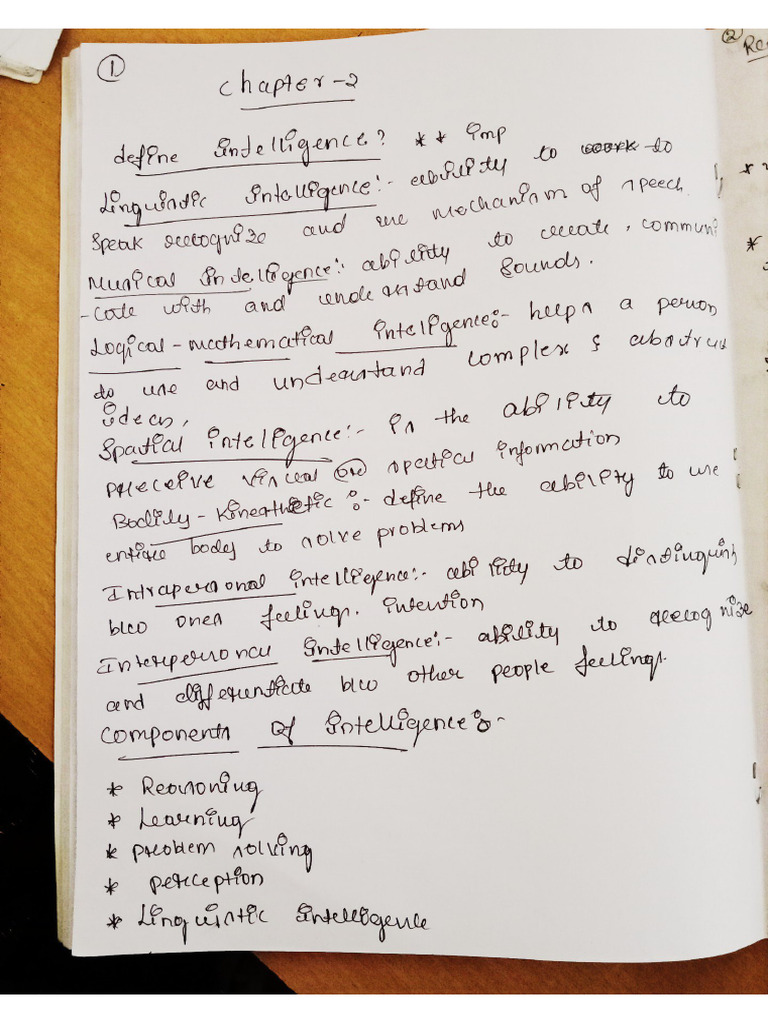 ①
Chapter-2
define intelligence? ** imp
Linguistic Intelligence:- ability to work to
speak recognize and use mechanism of speech
Musical intelligence:- ability to create, communi
-cate with and understand sounds.
Logical-mathematical intelligence:- helps a person
to use and understand complex & abstract
ideas,
Spatial intelligence:- is the ability to
preceive visual (or) spatical information
Bodily-Kinesthetic :- define the ability to use
entire body to solve problems
Intrapersonal intelligence:- ability to distinquish
b/w ones feelings. intention
Interpersonal intelligence:- ability to recognize
and differentiate b/w other people feelings.
Components of intelligence:-
* Reasoning
* Learning
* problem solving
* perception
* Linguistic intelligence
②